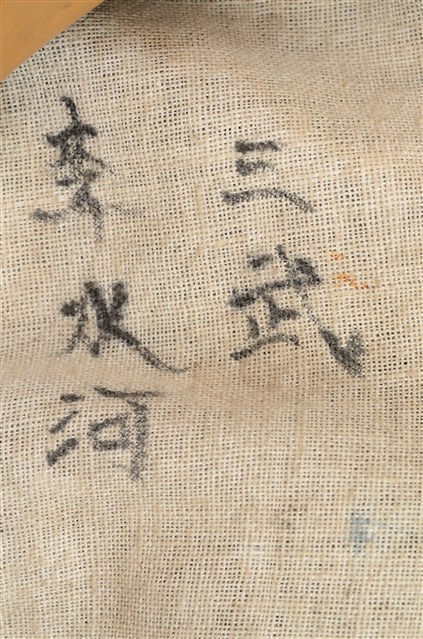 三武
李水河